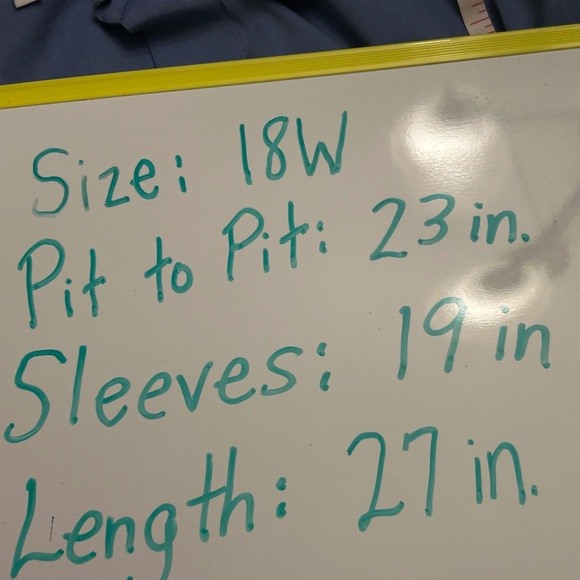 Size: 18W
Pit to Pit: 23 in.
Sleeves: 19 in
Length: 27 in.